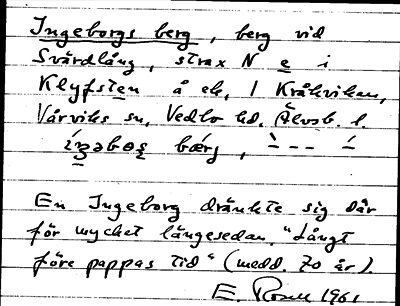 Ingeborgs berg, berg vid
Svärdlång, strax N e i
Klyfsten å ek, 1 Kråkviken,
Vårviks sn, Vedbo hd. Älvsb. l.
bærj,
En Ingeborg dränkte sig där
för mycket längesedan. "Långt
före pappas tid" (medd. 70 år).
E. 1961